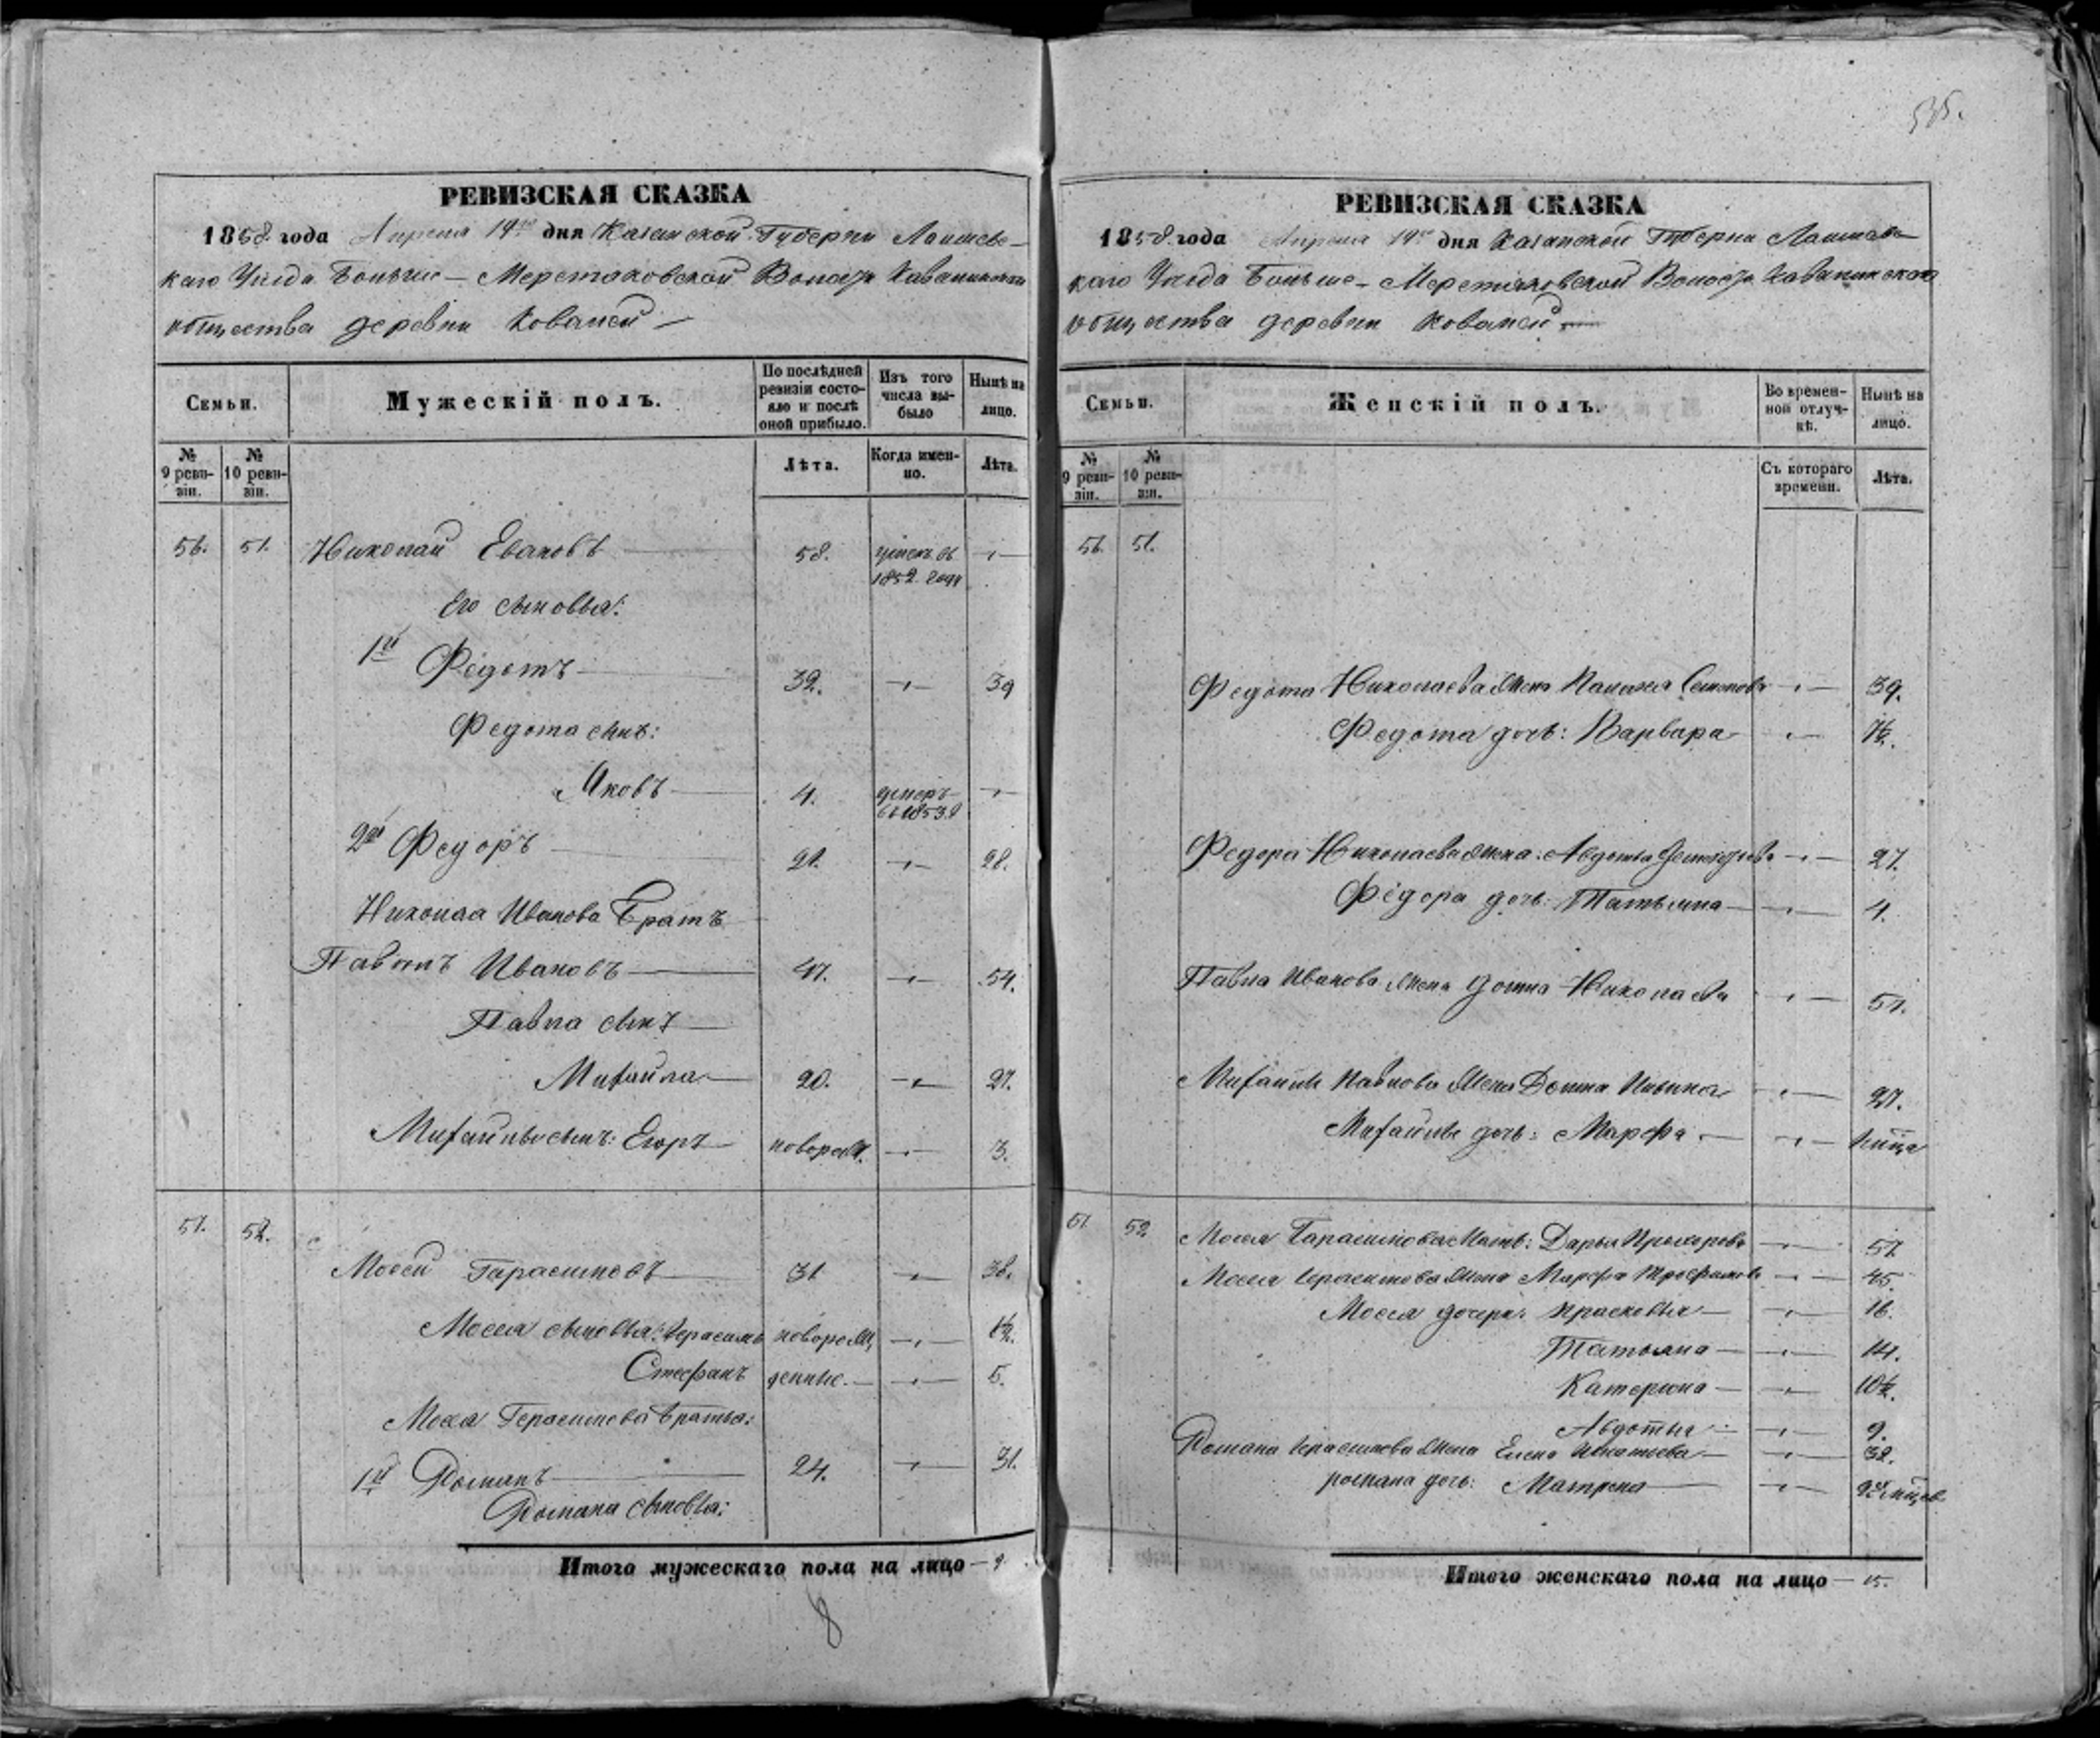 35.
РЕВИЗСКАЯ СКАЗКА
1858 года Апреля 19го дня Казанской Губерніи Лаишевс-
каго Уѣзда Больше-Меретяковской Волости Кабанинскаго
общества деревни Ковалей
Семьи.
Мужескій полъ.
По послѣдней ревизіи состояло и послѣ оной прибыло.
Изъ того числа выбыло
Нынѣ на лицо.
№ 9 ревизіи.
№ 10 ревизіи.
Лѣта.
Когда именно.
Лѣта.
56. 51. Николай Ивановъ 58. 1852 года
Его сыновья:
1й Федотъ 32. 39
Федота сынъ:
Яковъ 4. умеръ въ 1853 г
2й Федоръ 21. 28.
Николая Иванова Братъ
Павелъ Ивановъ 47. 54.
Павла сынъ
Михайла 20. 27.
Михайлы сынъ: Егоръ поворожд. 3.
57. 52.
Мосей Гарасимовъ 31 38.
Мосея сыновья: Герасимъ новорож 1½.
Степанъ денные. 5.
Мосея Герасимова братья:
1й Романъ 24. 31.
Романа сыновья:
Итого мужескаго пола на лицо — 9.
8
РЕВИЗСКАЯ СКАЗКА
1858 года Апреля 19го дня Казанской Губерніи Лаишевс-
каго Уѣзда Больше-Меретяковской Волости Кабанинскаго
общества деревни Ковалей
Семьи.
Женскій полъ.
Во временной отлучкѣ.
Нынѣ на лицо.
№ 9 ревизіи.
№ 10 ревизіи.
Съ котораго времени.
Лѣта.
56. 51.
Федота Николаева жена Семенова 39.
Федота дочь: Варвара 7½.
Федора Николаева жена: Авдотья 27.
Федора дочь: Татьяна 4.
Павла Иванова жена Домна Николаева 51.
Михайлы Павлова жена Домна 27.
Михайлы дочь: Марфа
57 52. Мосея Гарасимова Мать: Дарья Прохорова 57
Мосея Герасимова жена Марфа Трофимова 45
Мосея дочери: Прасковья 16.
Татьяна 14.
Катерина 10½.
Авдотья 9.
Романа Герасимова жена Елена Игнатьева 32.
Романа дочь: Матрена
Итого женскаго пола на лицо — 15.